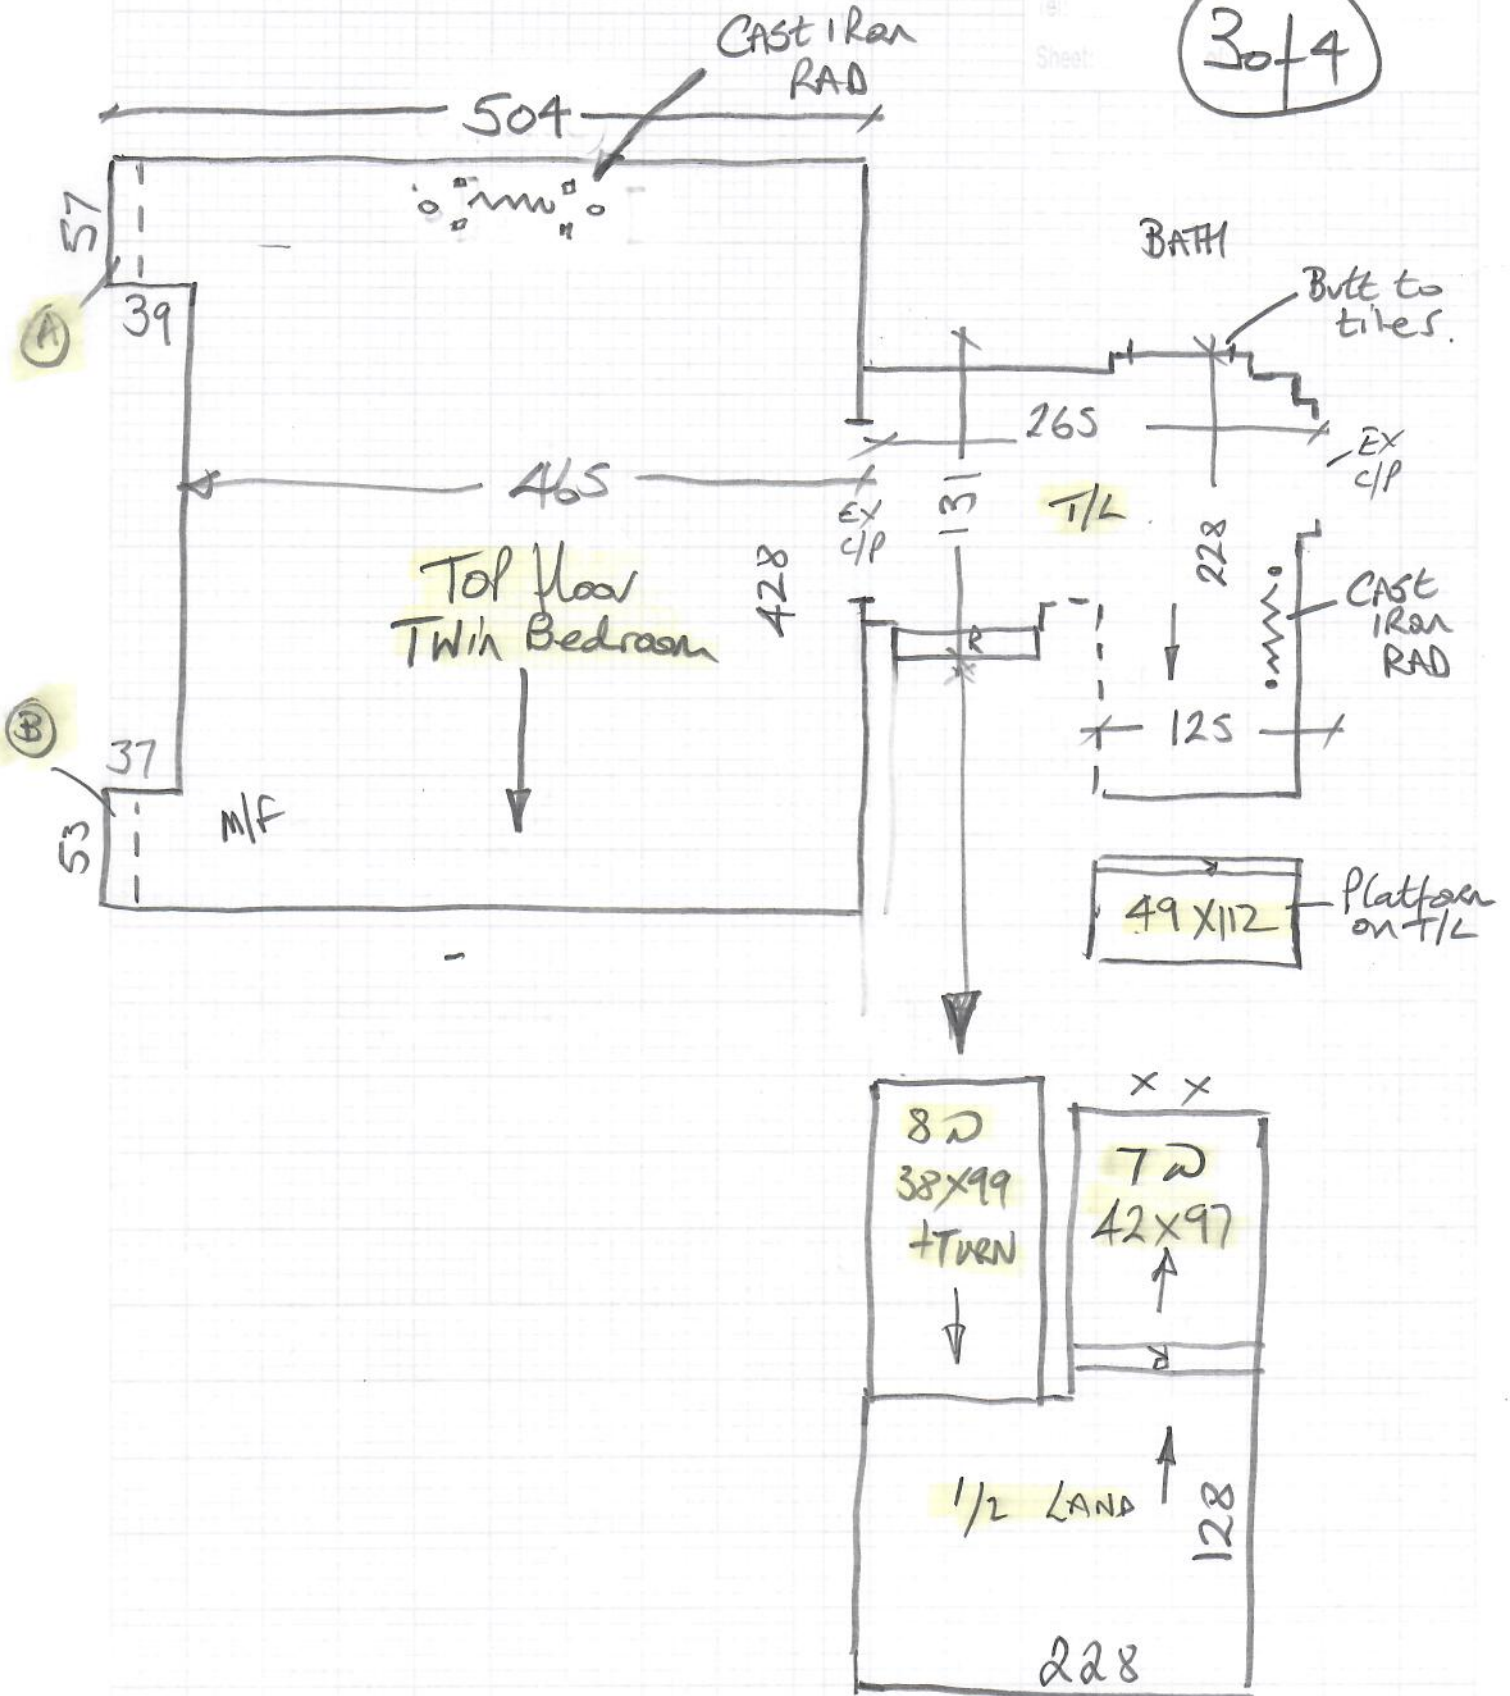 Sheet:
3 of 4
CAST IRon
RAD
504
57
A
39
BATH
Butt to
tiles.
265
EX
C/P
465
EX
C/P
131
T/L
228
428
TOP floor
TWin Bedroom
R
CAST
IRon
RAD
125
B
37
53
M/F
49 X 112
Platform
on T/L
X X
8
38X99
+TURN
7
42X97
1/2 LAND
128
228